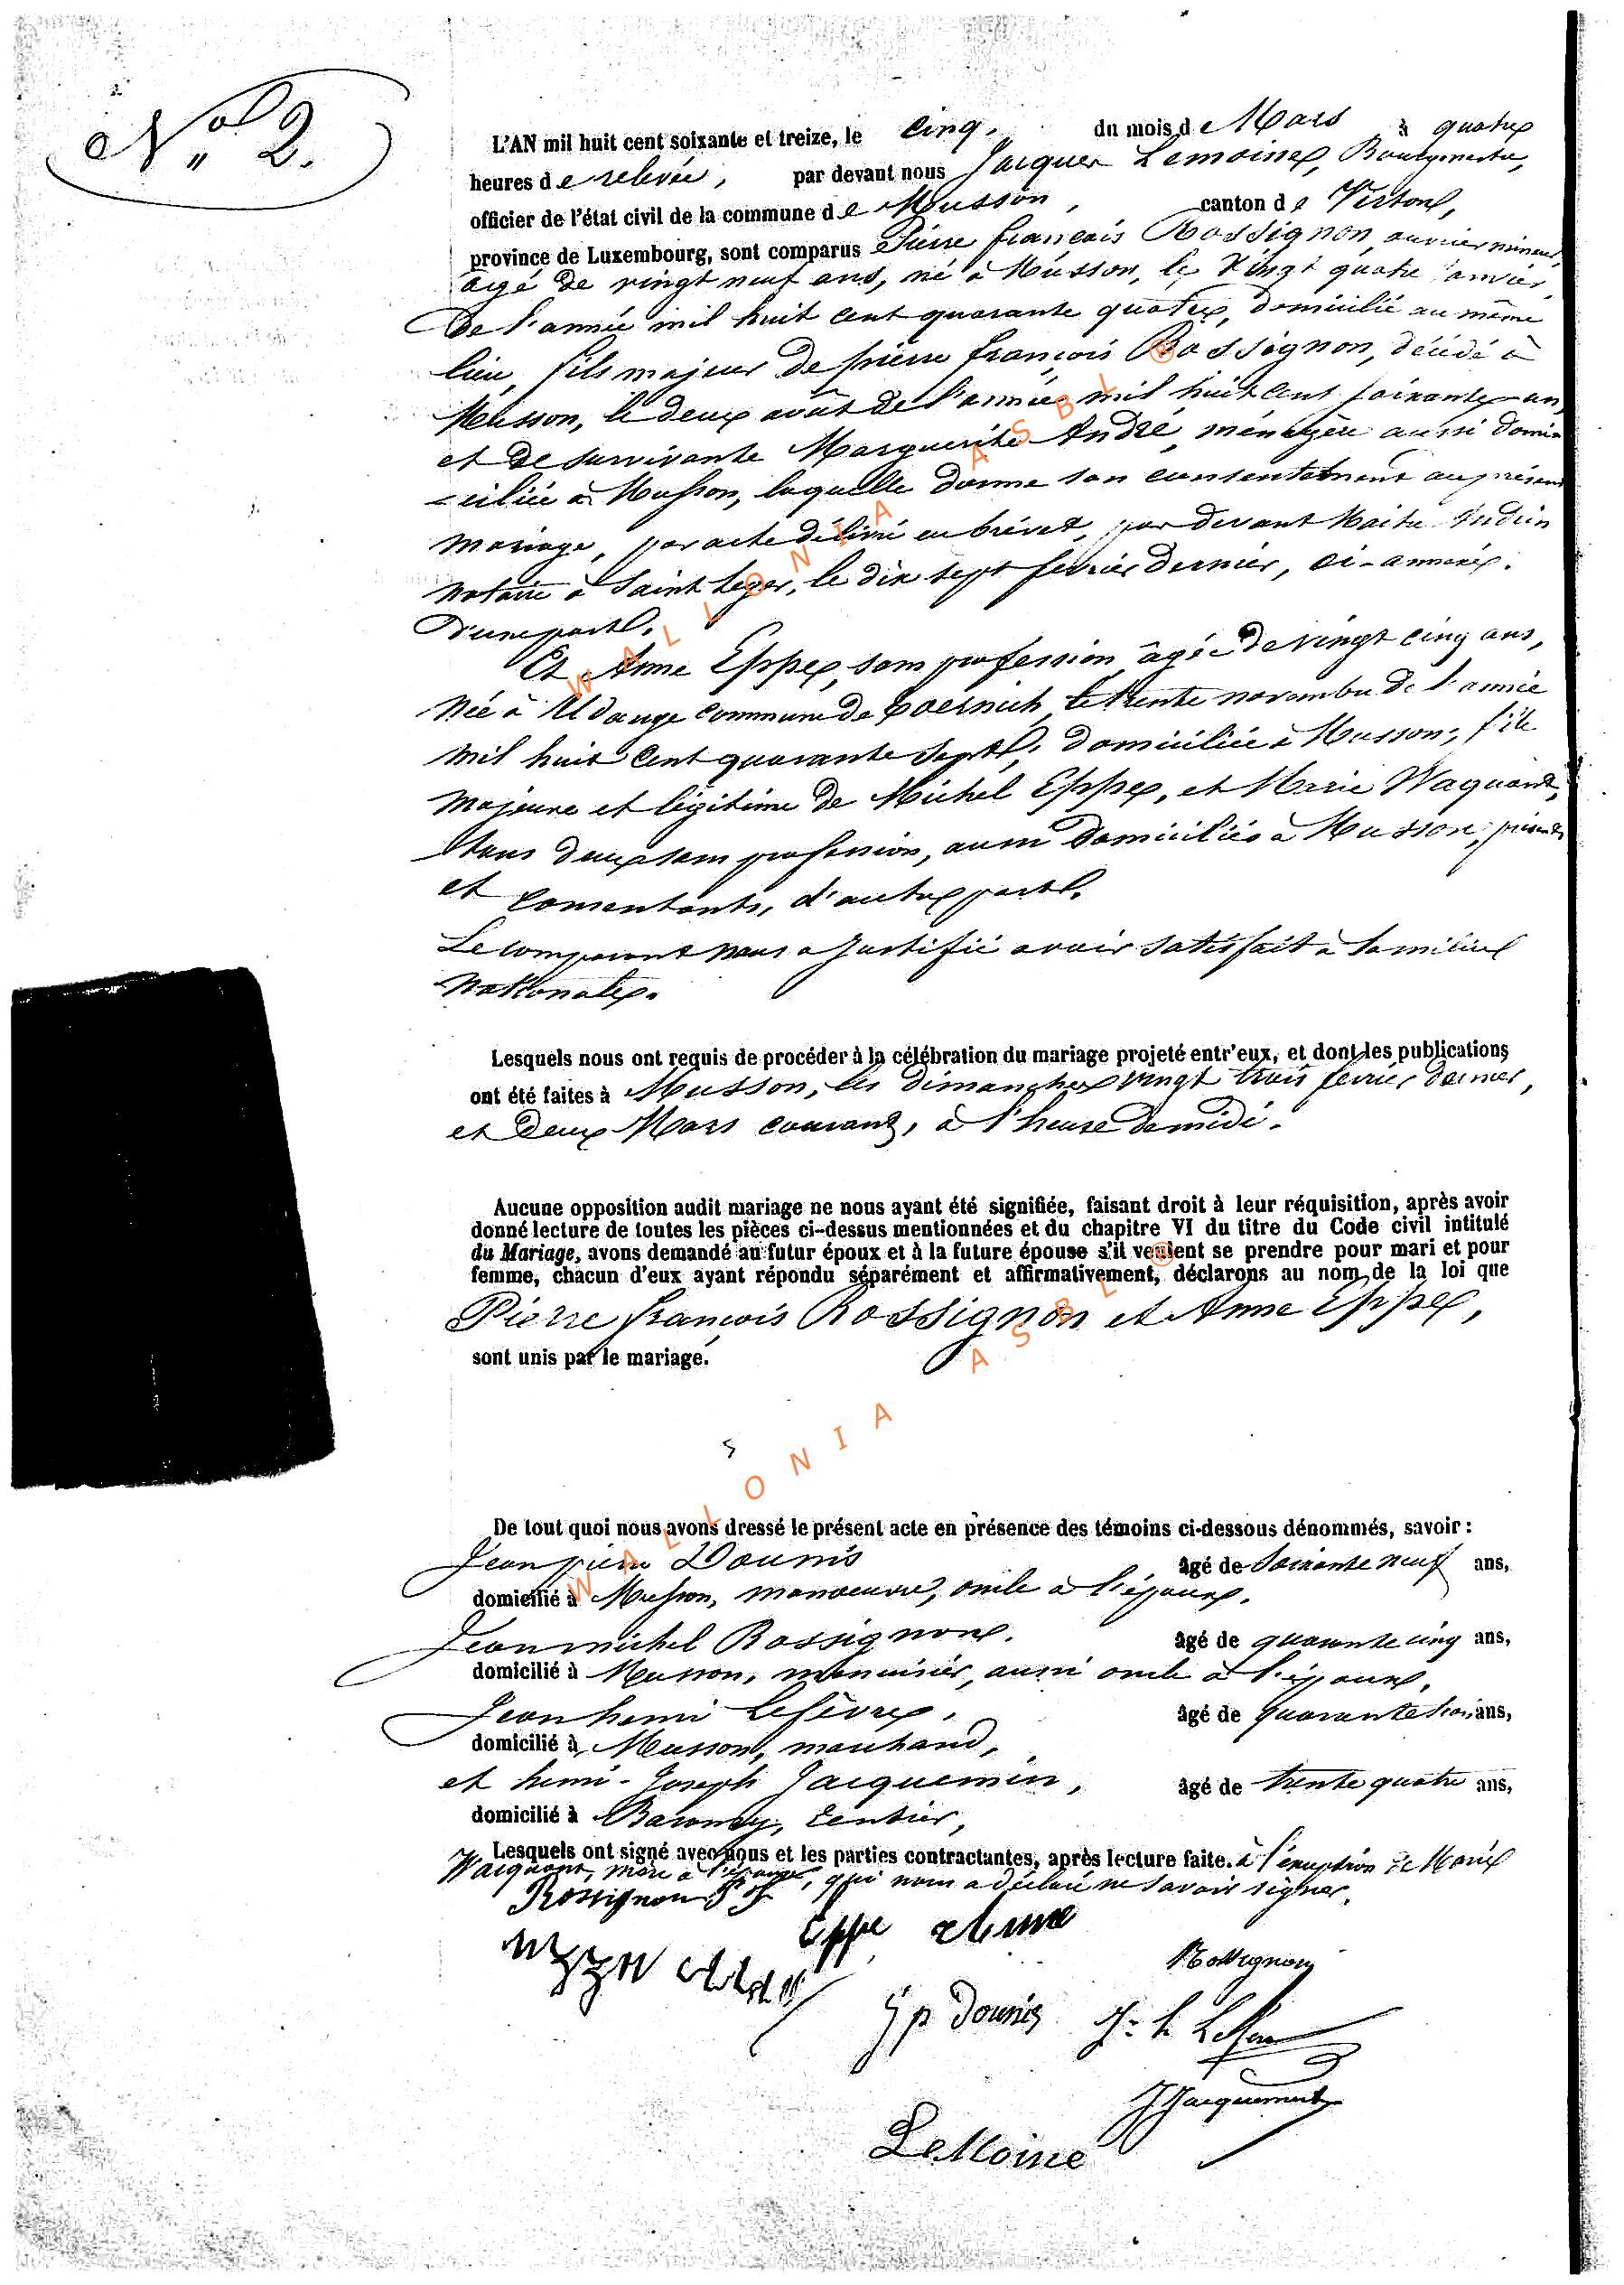 N° 2.
L'AN mil huit cent soixante et treize, le cinq, du mois de Mars à quatre
heures de relevée, par devant nous Jacques Lemoine, Bourgmestre,
officier de l'état civil de la commune de Musson, canton de Virton,
province de Luxembourg, sont comparus Pierre françois Rossignon, ouvrier mineur,
âgé de vingt neuf ans, né à Musson, le vingt quatre janvier,
de l'année mil huit cent quarante quatre, domicilié au même
lieu, fils majeur de pierre françois Rossignon, décédé à
Musson, le deux août de l'année mil huit cent soixante-un,
et de survivante Marguerite André, ménagère aussi domi-
-ciliée à Musson, laquelle donne son consentement au présent
mariage, par acte délivré en brévet, par devant Maître
notaire à Saint Leger, le dix sept fevrier dernier, ci-annexé.
D'une part.
Et Anne Eppe, sans profession, âgée de vingt cinq ans,
née à Udange commune de le trente novembre de l'année
mil huit cent quarante sept, domiciliée à Musson, fille
majeure et légitime de Michel Eppe, et Marie Waquant,
tous deux sans profession, aussi domiciliés à Musson, présents
et consentants, d'autre part.
Le comparant nous a justifié avoir satisfait à la milice
nationale.
Lesquels nous ont requis de procéder à la célébration du mariage projeté entr'eux, et dont les publications
ont été faites à Musson, les dimanches vingt trois fevrier dernier,
et deux Mars courant, à l'heure de midi.
Aucune opposition audit mariage ne nous ayant été signifiée, faisant droit à leur réquisition, après avoir
donné lecture de toutes les pièces ci-dessus mentionnées et du chapitre VI du titre du Code civil intitulé
du Mariage, avons demandé au futur époux et à la future épouse s'il veulent se prendre pour mari et pour
femme, chacun d'eux ayant répondu séparément et affirmativement, déclarons au nom de la loi que
Pierre françois Rossignon et Anne Eppe,
sont unis par le mariage.
De tout quoi nous avons dressé le présent acte en présence des témoins ci-dessous dénommés, savoir :
Jean pierre Dounis âgé de soixante neuf ans,
domicilié à Musson, manoeuvre, oncle à l'époux,
Jean michel Rossignon, âgé de quarante cinq ans,
domicilié à Musson, menuisier, aussi oncle à l'époux,
Jean henri Lefèvre, âgé de quarante trois ans,
domicilié à Musson, marchand,
et henri-Joseph Jacquemin, âgé de trente quatre ans,
domicilié à Baranzy, rentier,
Lesquels ont signé avec nous et les parties contractantes, après lecture faite. à l'éxception de Marie
Wacquant, mère à l'épouse, qui nous a déclaré ne savoir signer.
Rossignon P F
Eppe Anne
Rossignon
J p Dounis J. h Lefèvre
J Jacquemin
LeMoine
WALLONIA ASBL ©
WALLONIA ASBL ©